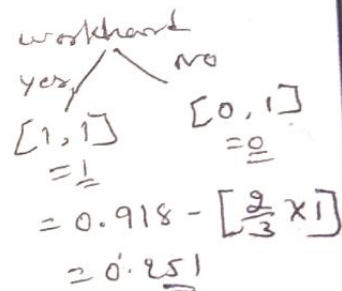 workhard
yes no
[1,1] [0,1]
=1 =0
= 0.918 - [2/3 x1]
= 0.251